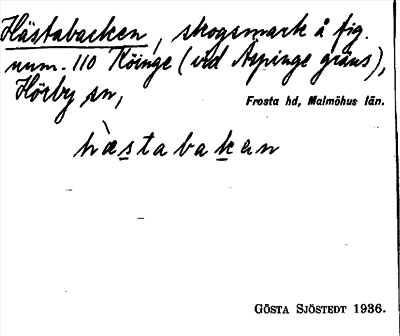 Hästabacken, skogsmark å fig.
num. 110 Köinge (vid Aspinge gräns),
Hörby sn,
Frosta hd, Malmöhus län.
hæ̀stabakæn
GÖSTA SJÖSTEDT 1936.